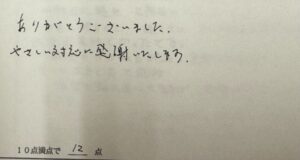 ありがとうございました。
やさしい対応に感謝いたします。
10点満点で 12 点